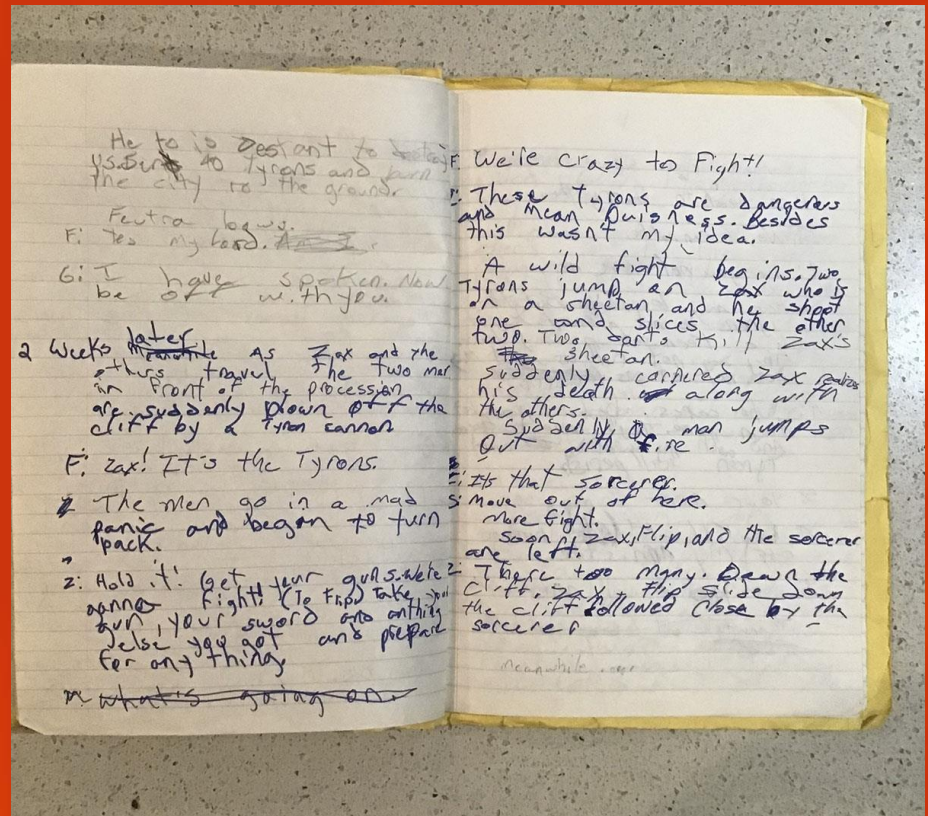 He to is Destant to
us. Send 40 Tyrons and burn
the city to the ground.
Feutra bows.
F: Yes my Lord.
G: I have spoken. Now
be off with you.
2 Weeks later As Zax and the
others travel The two men
in front of the procession
are suddenly blown off the
cliff by a Tyron cannon
F: Zax! It's the Tyrons.
The men go in a mad
panic and began to turn
pack.
Z: Hold it! Get your guns. We're
gonna fight! (To Flip) Take your
gun, your sword and anthing
else you got and prepare
for any thing
what's going on.
F: We're crazy to Fight!
Z: These Tyrons are dangerers
and mean Buisness. Besides
this wasn't my idea.
A wild fight begins. Two
Tyrons jump on Zax who is
on a sheetan and he shoot
one and slices the other
two. Two darts kill Zax's
sheetan.
Suddenly cornered Zax realizes
his death along with
the others.
Suddenly, a man jumps
Out with fire.
Z: Its that sorcerer.
S: Move out of here.
More fight.
Soon Zax, Flip, and the sorcerer
are left.
Z: There too many. Down the
Cliff. Zax, Flip slide down
the cliff followed close by the
sorcerer
meanwhile